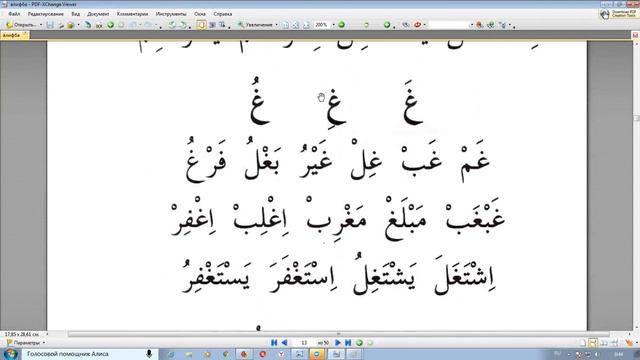 алифба - PDF-XChange Viewer
Файл Редактирование Вид Документ Комментарии Инструменты Окно Справка
Открыть... Увеличение 200%
алифба
غَ غِ غُ
غَمْ غَبْ غِلْ غَيْرُ بَغْلُ فَرْغُ
غَبْغَبْ مَبْلَغْ مَغْرِبْ اِغْلِبْ اِغْفِرْ
اِشْتَغَلَ يَشْتَغِلُ اِسْتَغْفَرَ يَسْتَغْفِرُ
17,85 x 28,61 см
Параметры 13 из 50
Голосовой помощник Алиса RU 8:44